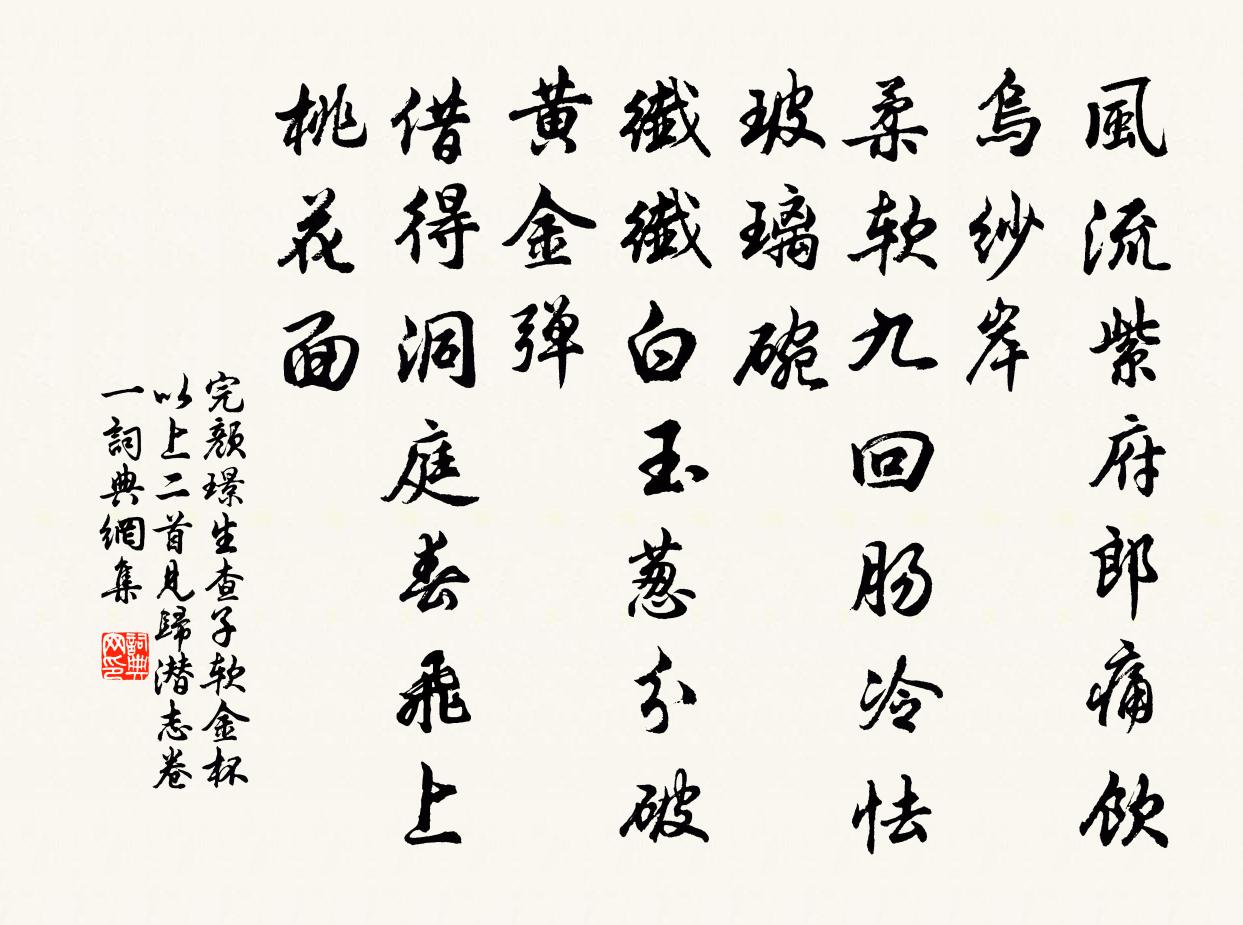 風流紫府郎痛飲
烏紗岸
柔軟九回肠冷怯
玻璃碗
纖纖白玉葱分破
黄金弹
借得洞庭春飛上
桃花面
完颜璟生查子软金杯
以上二首見歸潜志卷
一詞典網集
詞典网印